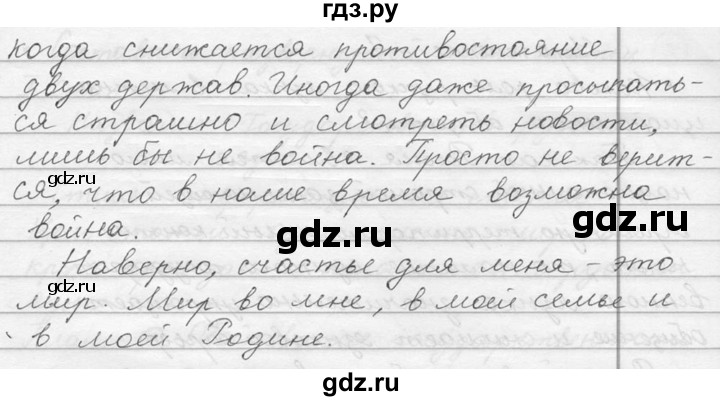 гдз.ру
когда снижается противостояние
двух держав. Иногда даже просыпать-
ся страшно и смотреть новости,
лишь бы не война. Просто не верит-
gdz.ru
ся, что в наше время возможна
gdz.ru
gdz.ru
война.
Наверно, счастье для меня – это
мир. Мир во мне, в моей семье и
в моей Родине.
gdz.ru